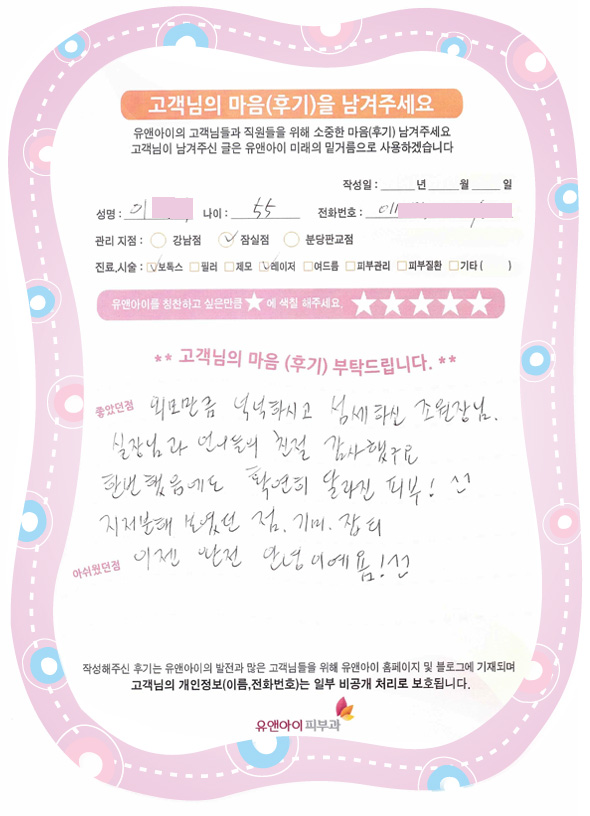 고객님의 마음(후기)을 남겨주세요
유앤아이의 고객님들과 직원들을 위해 소중한 마음(후기) 남겨주세요
고객님이 남겨주신 글은 유앤아이 미래의 밑거름으로 사용하겠습니다
작성일 : 년 월 일
성명 : 이 나이 : 55 전화번호 : 011
관리 지점 : 강남점 잠실점 분당판교점
진료,시술 : 보톡스 필러 제모 레이저 여드름 피부관리 피부질환 기타 ( )
유앤아이를 칭찬하고 싶은만큼 ★ 에 색칠 해주세요. ★★★★★
** 고객님의 마음 (후기) 부탁드립니다. **
좋았던점 외모만큼 넉넉하시고 섬세하신 조원장님.
실장님과 언니들의 친절 감사했구요
한번 했음에도 확연히 달라진 피부!
지저분해 보였던 점. 기미. 잡티
아쉬웠던점 이젠 완전 안녕이예욤!
작성해주신 후기는 유앤아이의 발전과 많은 고객님들을 위해 유앤아이 홈페이지 및 블로그에 기재되며
고객님의 개인정보(이름,전화번호)는 일부 비공개 처리로 보호됩니다.
유앤아이피부과